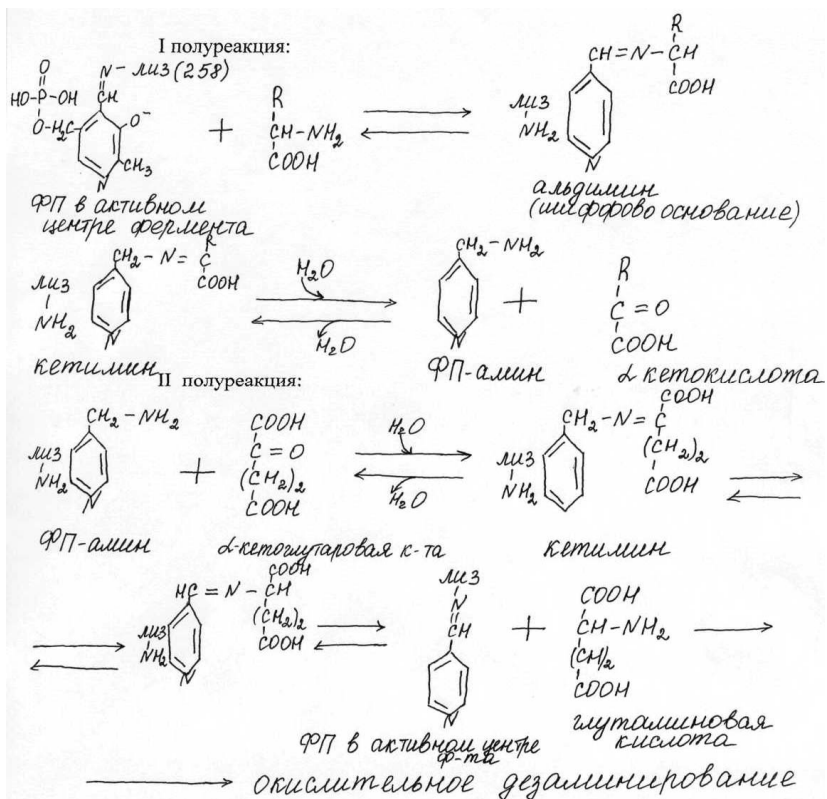 I полуреакция:
O
HO-P-OH
O-H₂C
N-лиз(258)
CH
O⁻
CH₃
N
+
R
CH-NH₂
COOH
CH=N-CH
R
COOH
лиз
NH₂
N
ФП в активном
центре фермента
альдимин
(шиффово основание)
CH₂-N=C
R
COOH
лиз
NH₂
N
H₂O
H₂O
CH₂-NH₂
N
+
R
C=O
COOH
кетимин
ФП-амин
α кетокислота
II полуреакция:
CH₂-NH₂
лиз
NH₂
N
+
COOH
C=O
(CH₂)₂
COOH
H₂O
H₂O
CH₂-N=C
COOH
(CH₂)₂
COOH
лиз
NH₂
ФП-амин
α-кетоглутаровая к-та
кетимин
HC=N-CH
COOH
(CH₂)₂
COOH
лиз
NH₂
N
лиз
N
CH
N
+
COOH
CH-NH₂
(CH)₂
COOH
ФП в активном центре
ф-та
глутаминовая
кислота
окислительное дезаминирование